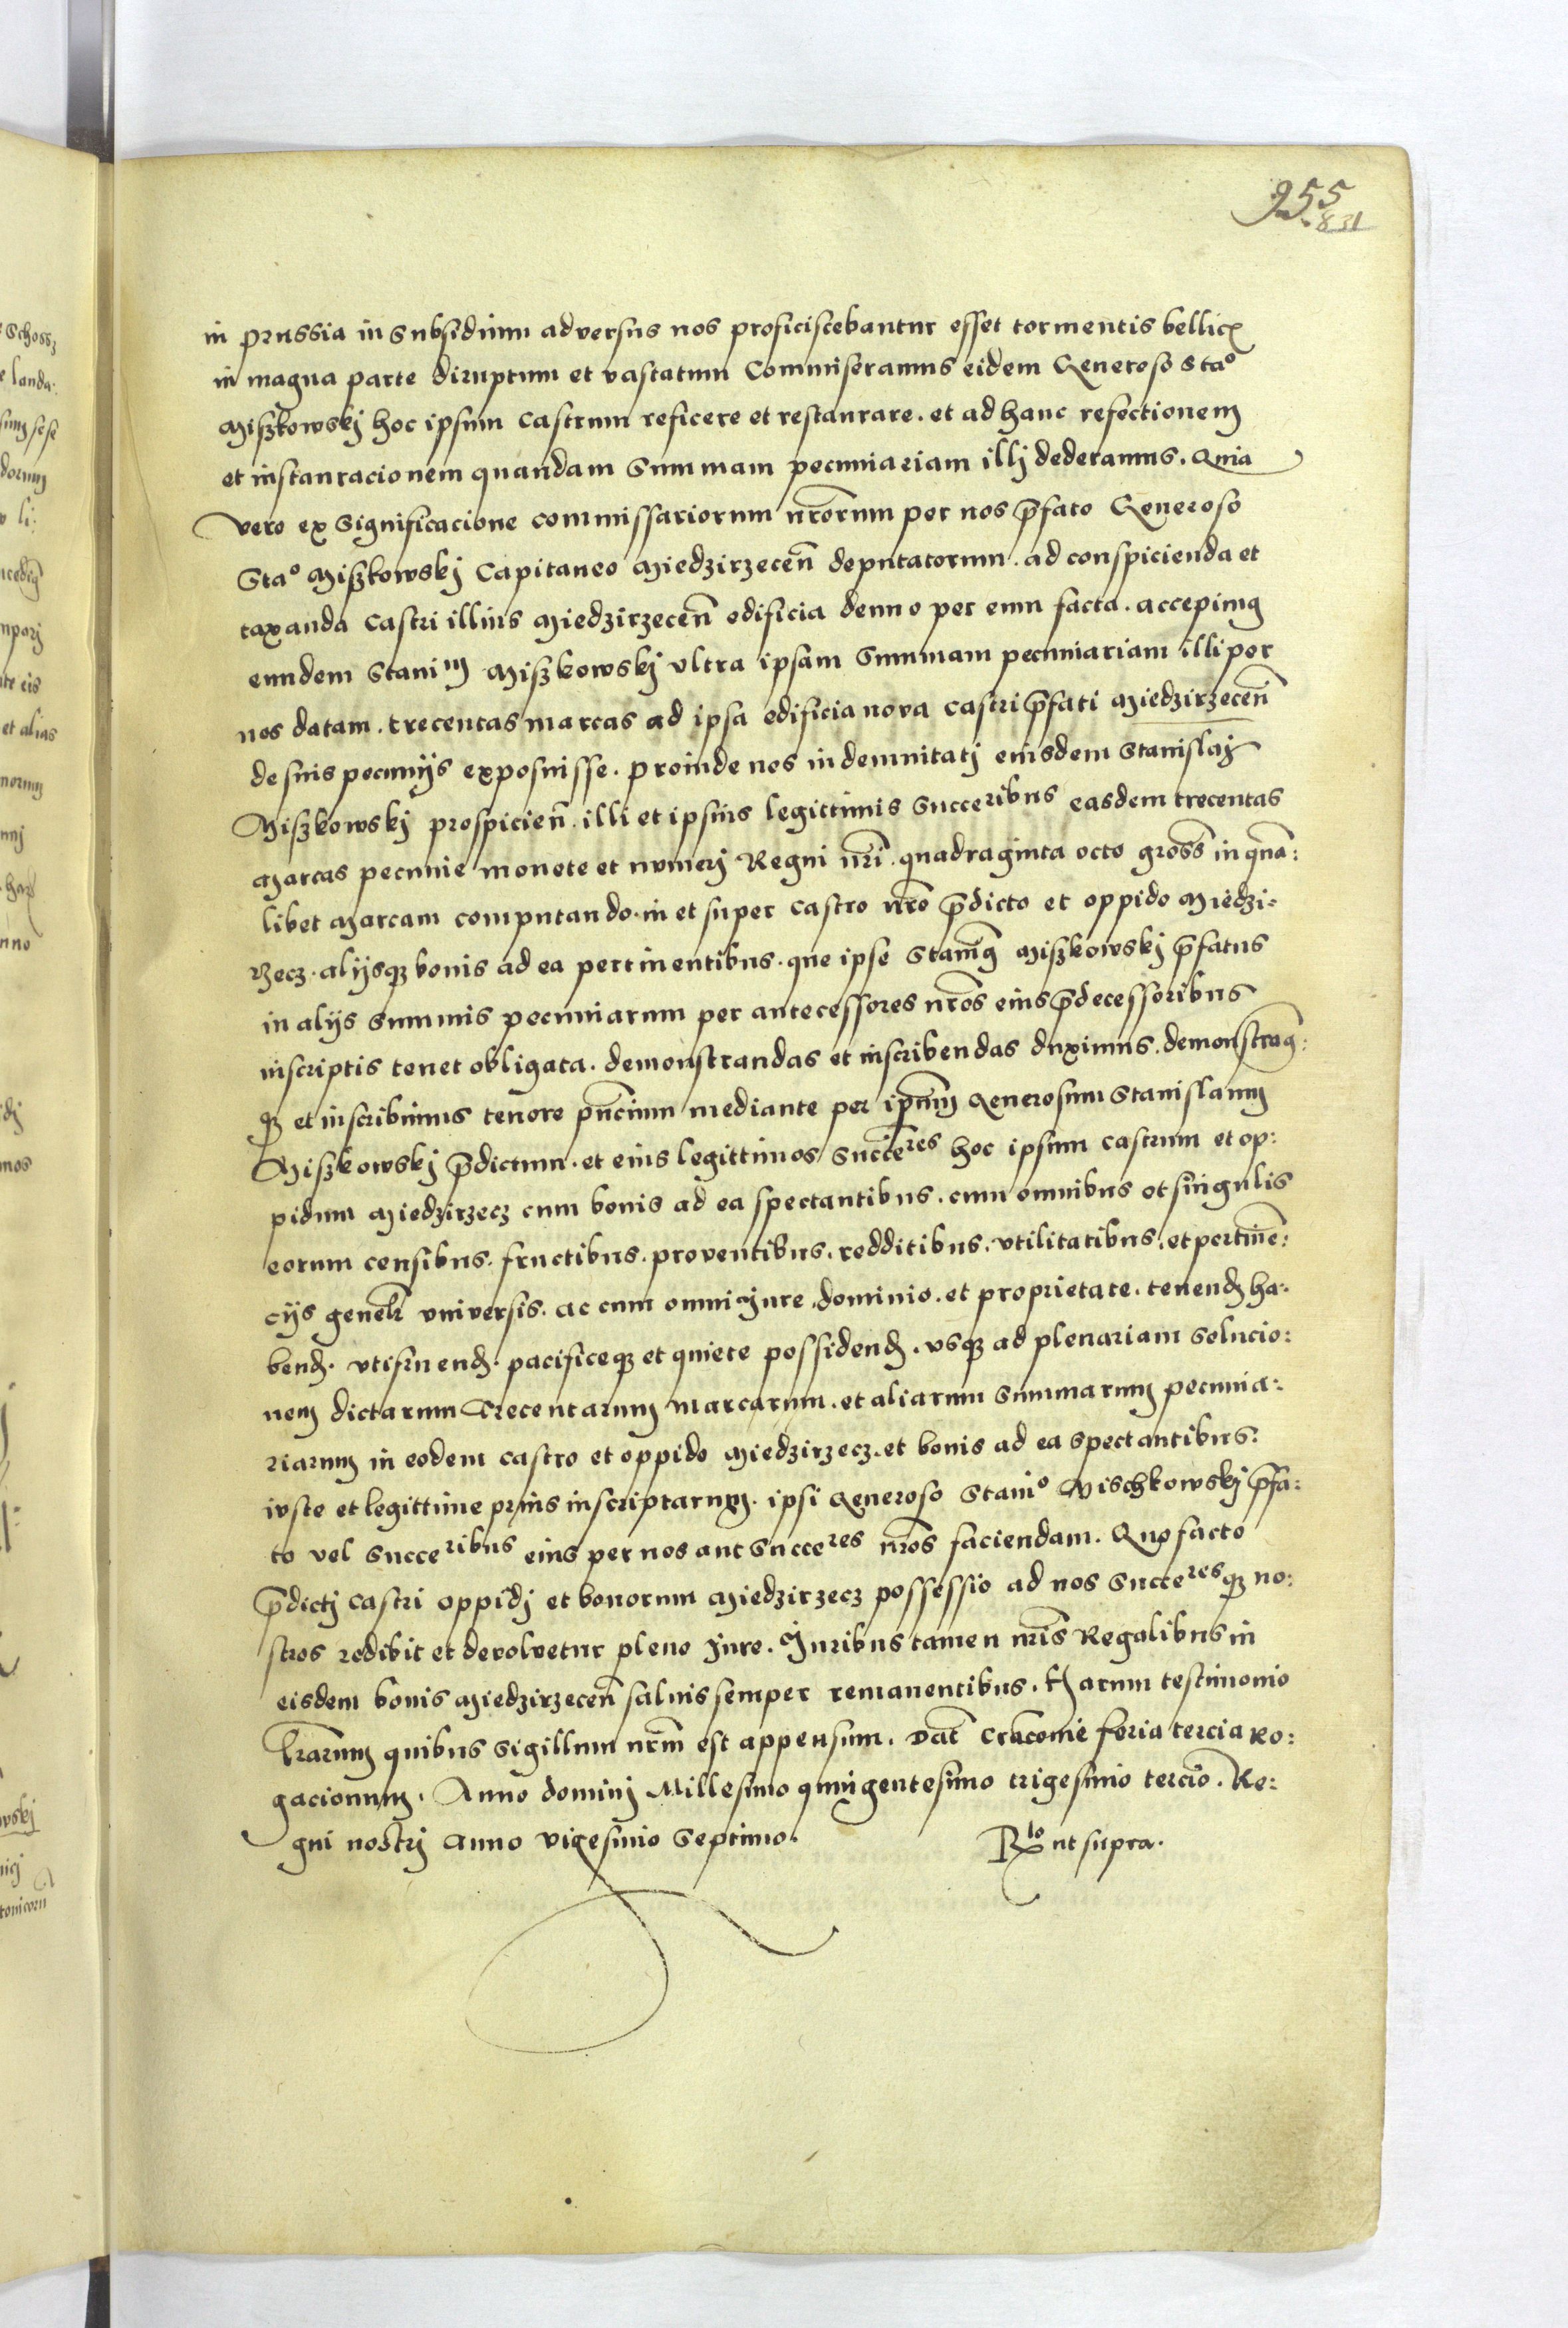 955
831
in prussia in subsidium adversus nos proficiscebantur esset tormentis bellicꝭ
in magna parte diruptum et vastatum Commiseramus eidem Generoso Stao
Miszkowskj hoc ipsum castrum reficere et restaurare . et ad hanc refectionem
et instauracionem quandam summam pecuniariam illj dederamus . Quia
vero ex significacione commissariorum nrōrum per nos p̄fato Generoso
Stao Miszkowskj Capitaneo Miedzirzecen̄ deputatorum . ad conspicienda et
taxanda castri illius Miedzirzecen̄ edificia denuo per eum facta . accepimꝰ
eundem Stanim Miszkowskj ultra ipsam summam pecuniariam illi per
nos datam . trecentas marcas ad ipsa edificia nova castri p̄fati Miedzirzecen̄
de suis pecunijs exposuisse . proinde nos indemnitatj eiusdem Stanislaj
Miszkowskj prospicien̄ . illi et ipsius legittimis succeribus easdem trecentas
marcas pecunie monete et numerj Regni nrī . quadraginta octo gross̄ in quā:
libet marcam computando . in et super castro nrō p̄dicto et oppido Miedzi:
rzecz . alijsqꝫ bonis ad ea pertinentibus . que ipse Stanisꝰ Miszkowskj p̄fatus
in alijs summis pecuniarum per antecessores nrōs eius p̄decessoribus
inscriptis tenet obligata . demonstrandas et inscribendas duximus . demonstramꝰ:
qꝫ et inscribimus tenore pn̄cium mediante per ipsum Generosum Stanislaum
Miszkowskj p̄dictum . et eius legittimos succeres hoc ipsum castrum et op:
pidum Miedzirzecz cum bonis ad ea spectantibus . cum omnibus et singulis
eorum censibus . fructibus . proventibus . redditibus . utilitatibus . et pertinē:
cijs genelr̄ universis . ac cum omni jure . dominio . et proprietate . tenend ha:
bend . utifruend . pacificeqꝫ et quiete possidend . usqꝫ ad plenariam solucio:
nem dictarum trecentarum marcarum . et aliarum summarum pecunia:
riarum in eodem castro et oppido Miedzirzecz . et bonis ad ea spectantibus:
iuste et legittime prius inscriptarum . ipsi Generoso Stanio Mischkowskj p̄fa:
to vel succeribus eius per nos aut succeres nrōs faciendam . Quo facto
p̄dictj castri oppidj et bonorum Miedzirzecz possessio ad nos succeresqꝫ no:
stros redibit et devolvetur pleno jure . Juribus tamen nrīs Regalibus in
eisdem bonis Miedzirzecen̄ salvis semper remanentibus . Harum testimonio
lrārum quibus sigillum nrm̄ est appensum . Dat̄ Cracovie feria tercia Ro:
gacionum . Anno dominj Millesimo quingentesimo trigesimo tercio . Re:
gni nostrj anno vigesimo septimo .
Rlo ut supra .